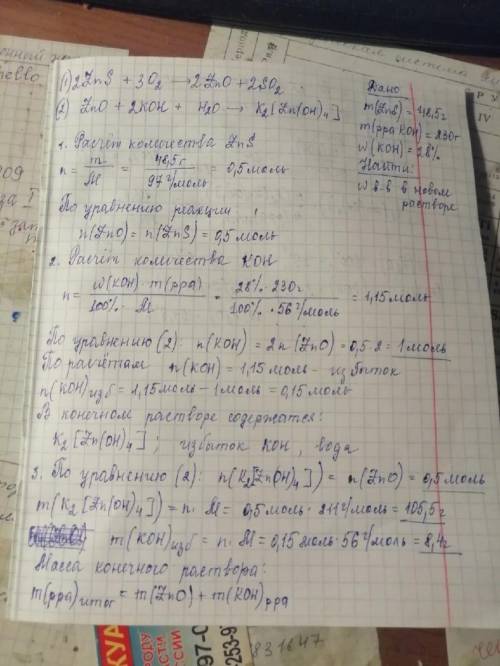 (1) 2ZnS + 3O₂ → 2ZnO + 2SO₂
(2) ZnO + 2KOH + H₂O → K₂[Zn(OH)₄]
Дано
m(ZnS) = 48,5г
m(рра KOH) = 230г
w(KOH) = 28%
Найти:
w в-в в новом
растворе
1. Расчёт количества ZnS
n = m/M = 48,5г / 97г/моль = 0,5 моль
По уравнению реакции
n(ZnO) = n(ZnS) = 0,5 моль
2. Расчёт количества KOH
n = w(KOH) · m(рра) / 100% · M = 28% · 230г / 100% · 56г/моль = 1,15 моль
По уравнению (2): n(KOH) = 2n(ZnO) = 0,5·2 = 1 моль
По расчётам n(KOH) = 1,15 моль - избыток
n(KOH)изб = 1,15 моль - 1 моль = 0,15 моль
В конечном растворе содержатся:
K₂[Zn(OH)₄]; избыток KOH, вода
3. По уравнению (2): n(K₂[Zn(OH)₄]) = n(ZnO) = 0,5 моль
m(K₂[Zn(OH)₄]) = n · M = 0,5 моль · 211г/моль = 105,5г
m(KOH)изб = n · M = 0,15 моль · 56г/моль = 8,4г
Масса конечного раствора:
m(рра)итог = m(ZnO) + m(KOH)рра
КУА
РОДУ
ССИИ
97-0
253-9
831647
209
P V
IV